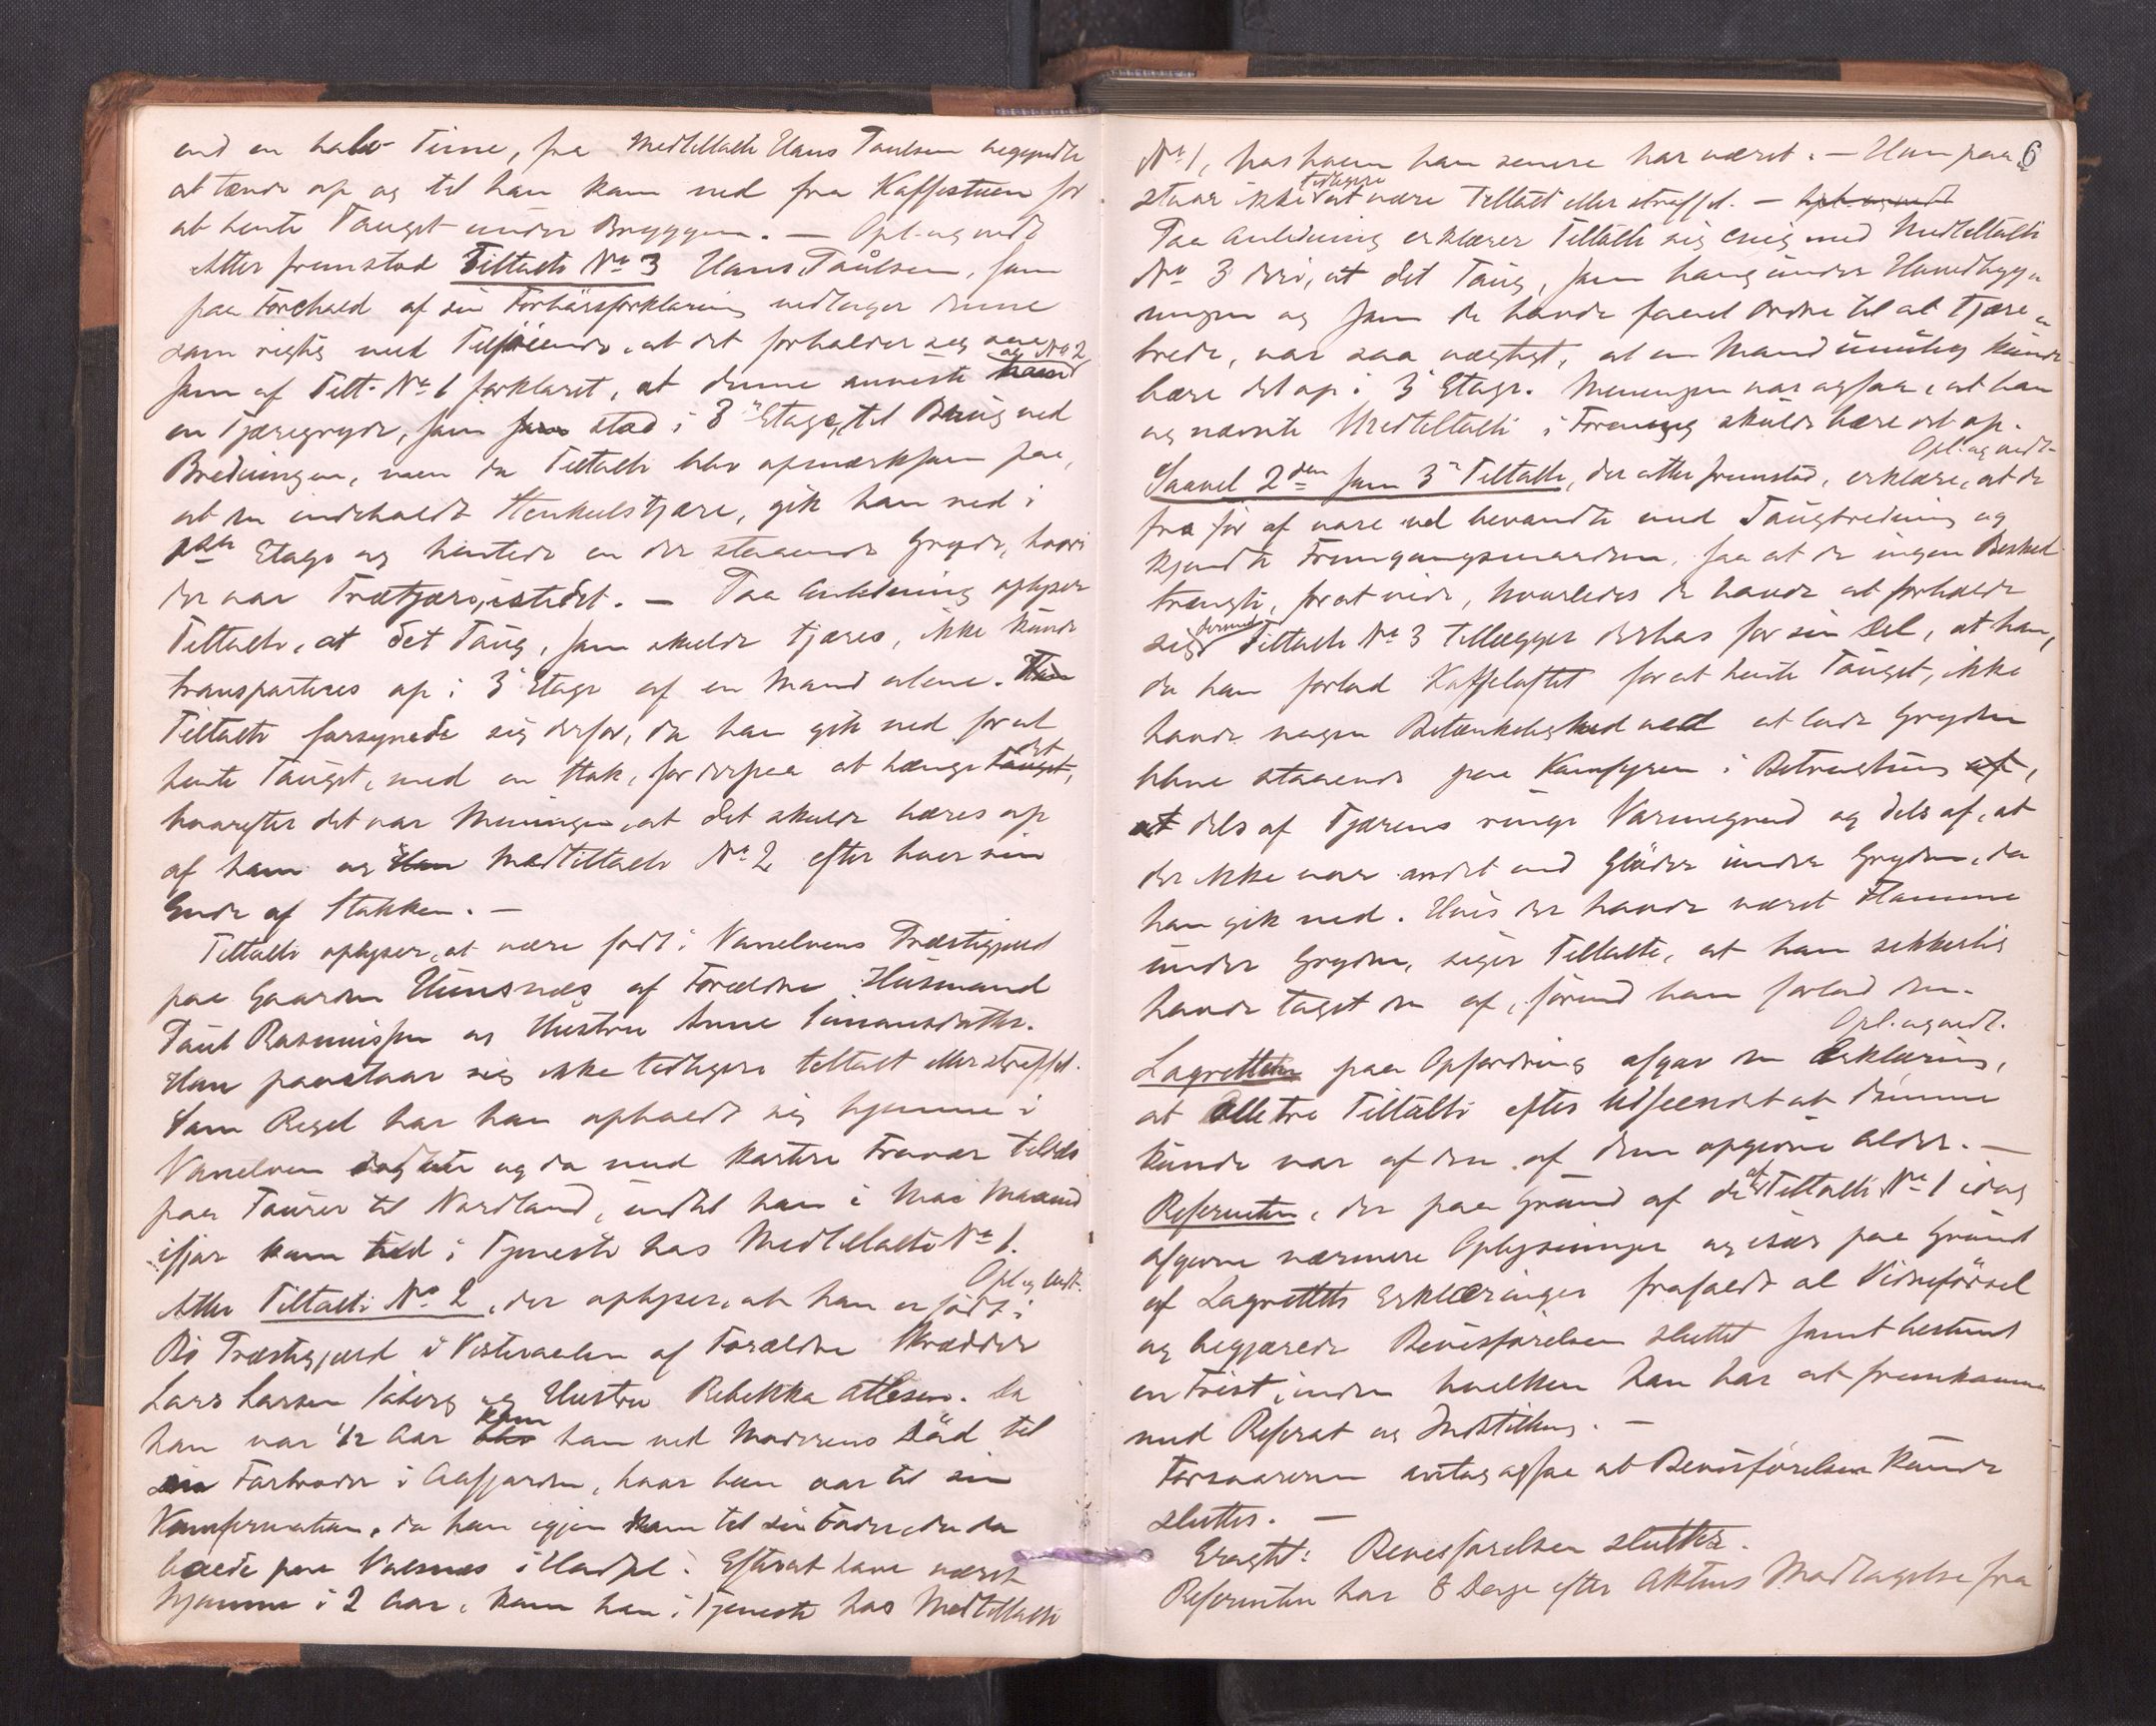 end en halv Time, fra Medtiltalte Hans Paulsen begyndte
at tænde op og til han kom ned fra Kaffestuen for
at hente Tauget under Bryggen. — Opl. og vedt.
Atter fremstod Tiltalte No 3 Hans Paulsen, som
paa Forehold af sin Forhørsforklaring vedtager denne
som rigtig med Tilføiende, at det forholder sig saa
som af Tilt. No 1 forklaret, at denne anviste ham og No 2
en Tjæregryde, som stod i 3die Etage, til Brug ved
Bredningen, men da Tiltalte blev opmærksom paa,
at den indeholdt Stenkulstjære, gik han ned i
Etage og hentede en der staaende Gryde, hvori
der var Trætjære, istedet. — Paa Anledning oplyser
Tiltalte, at det Taug, som skulde tjæres, ikke kunde
transporteres op i 3 Etage af en Mand alene. Han
Tiltalte forsynede sig derfor, da han gik ned for at
hente Tauget, med en Stok, for derpaa at hænge Tauget, det
hvorefter det var Meningen, at det skulde bæres op
af ham og Medtiltalte No 2 efter hver sin
Ende af Stokken. —
Tiltalte oplyser, at være født i Vanelvens Præstegjeld
paa Gaarden Hunsnæs af Forældre Husmand
Paul Rasmussen og Hustru Anne Simonsdatter.
Han paastaar sig ikke tidligere tiltalt eller straffet.
Som Regel har han opholdt sig hjemme i
Vanelven og da med kortere Fravær tildels
paa Tourer til Nordland, indtil han i Mai Maaned
ifjor kom i Tjeneste hos Medtiltalte No 1.
Opl. og vedt.
Atter Tiltalte No 2, der oplyser, at han er født i
Bø Præstegjeld i Vesteraalen af Forældre Skrædder
Lars Larsen og Hustru Rebekka Olesen. Da
han var 1/2 Aar blev kom han ved Moderens Død til
sin Farbroder i Aafjorden, hvor han var til sin
Konfirmation, da han igjen kom til sin Fader, der da
boede paa Valsnæs i Hadsel. Efterat have været
hjemme i 2 Aar, kom han i Tjeneste hos Medtiltalte
6
No 1, hos hvem han senere har været. — Han paa-
staar ikke tidligere at være tiltalt eller straffet. — Opl. og vedt
Paa Anledning erklærer Tiltalte sig enig med Medtiltalte
No 3 deri, at det Taug, som hang under Hovedbygn-
ingen og som de havde faaet Ordre til at tjære-
brede, var saa vægtigt, at en Mand umulig kunde
bære det op i 3 Etage. Meningen var ogsaa, at han
og nævnte Medtiltalte i Forening skulde bære det op.
Opl. og vedt.
Saavel 2den som 3die Tiltalte, der atter fremstod, erklære, at de
fra før af vare vel bevandte med Taugbredning og
kjendte Fremgangsmaaden, saa at de ingen Besked
trængte, for at vide, hvorledes de havde at forholde
sig dermed Tiltalte No 3 tillægger derhos for sin Del, at han,
da han forlod Kaffeloftet for at hente Tauget, ikke
havde nogen Betænkelighed ved at lade Gryden
blive staaende paa Komfyren i Betragtning af,
at dels af Tjærens ringe Varmegrad og dels af, at
der ikke var andet end Gløder under Gryden, da
han gik ned. Hvis der havde været Flamme
under Gryden, siger Tiltalte, at han sikkerlig
havde taget den af, førend han forlod den.
Opl. og vedt.
Lagretten paa Opfordring afgav den Erklæring,
at alle tre Tiltalte efter Udseendet at dømme
kunde var af den af dem opgivne Alder. —
Referenten, der paa Grund af de af Tiltalte No 1 idag
afgivne nærmere Oplysninger og især paa Grund
af Lagrettets Erklæringer frafaldt al Vidneførsel
og begjærede Bevisførelsen sluttet samt bestemt
en Frist, inden hvilken han har at fremkomme
med Referat og Indstilling. —
Forsvareren antog ogsaa at Bevisførelsen kunde
sluttes. —
Eragtet: Bevisførelsen sluttes.
Referenten har 8 Dage efter Aktens Modtagelse fra